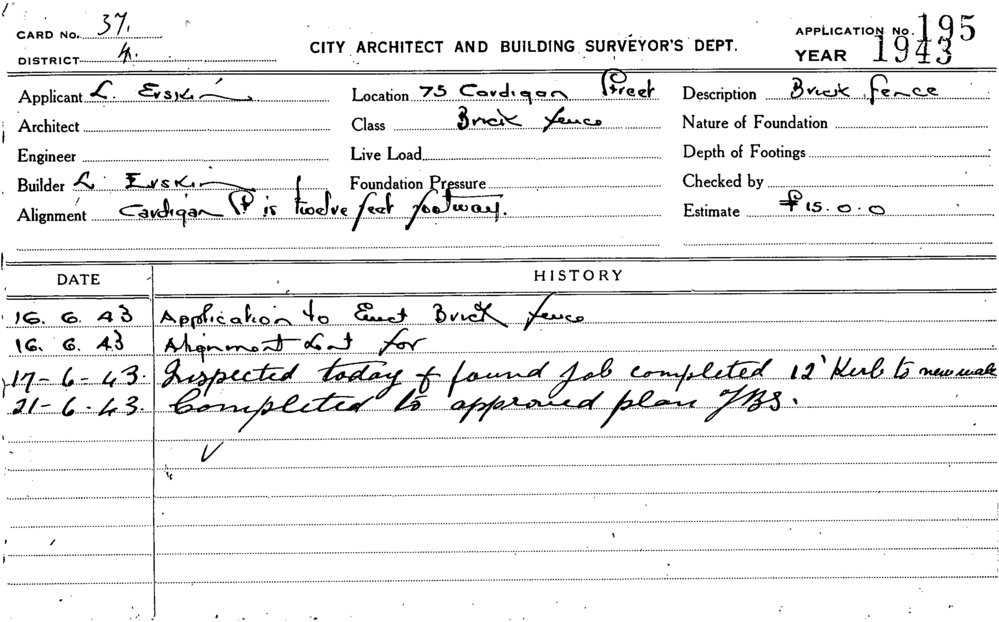 CARD No. 37.
DISTRICT 4.
CITY ARCHITECT AND BUILDING SURVEYOR'S DEPT.
APPLICATION No. 195
YEAR 1943
Applicant L. Erskin
Location 75 Cardigan Street
Description Brick fence
Architect
Class Brick fence
Nature of Foundation
Engineer
Live Load
Depth of Footings
Builder L. Erskin
Foundation Pressure
Checked by
Alignment Cardigan St is twelve feet footway.
Estimate £15.0.0
DATE HISTORY
16. 6. 43 Application to Erect Brick fence
16. 6. 43 Alignment for
17-6-43. Inspected today & found job completed 12' Kerb to new wall
21-6-43. Completed to approved plan